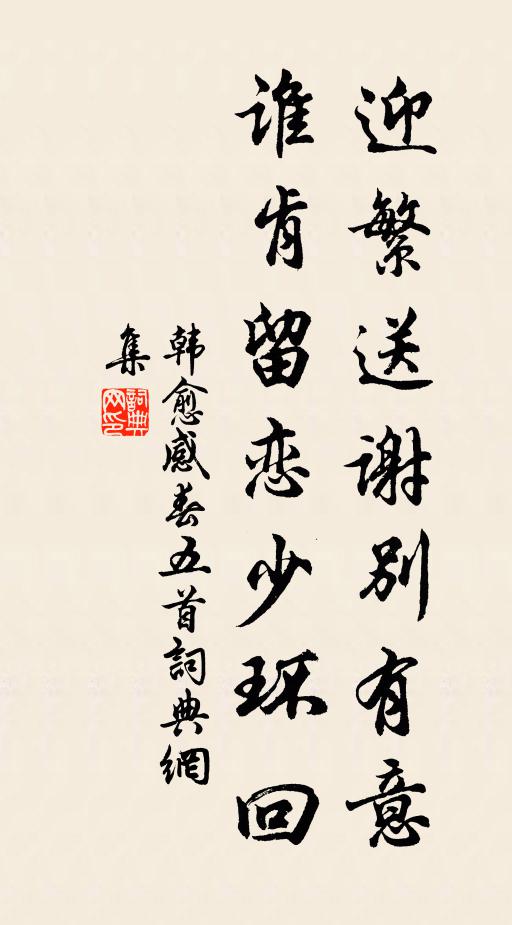 迎繁送谢别有意
谁肯留恋少环回
韩愈感春五首詞典網
集
詞典网印